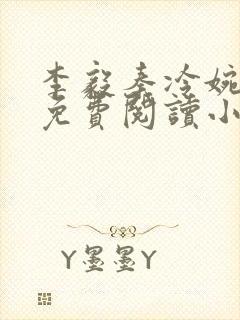 李毅秦冷婉
免費閱讀小
Y墨墨Y